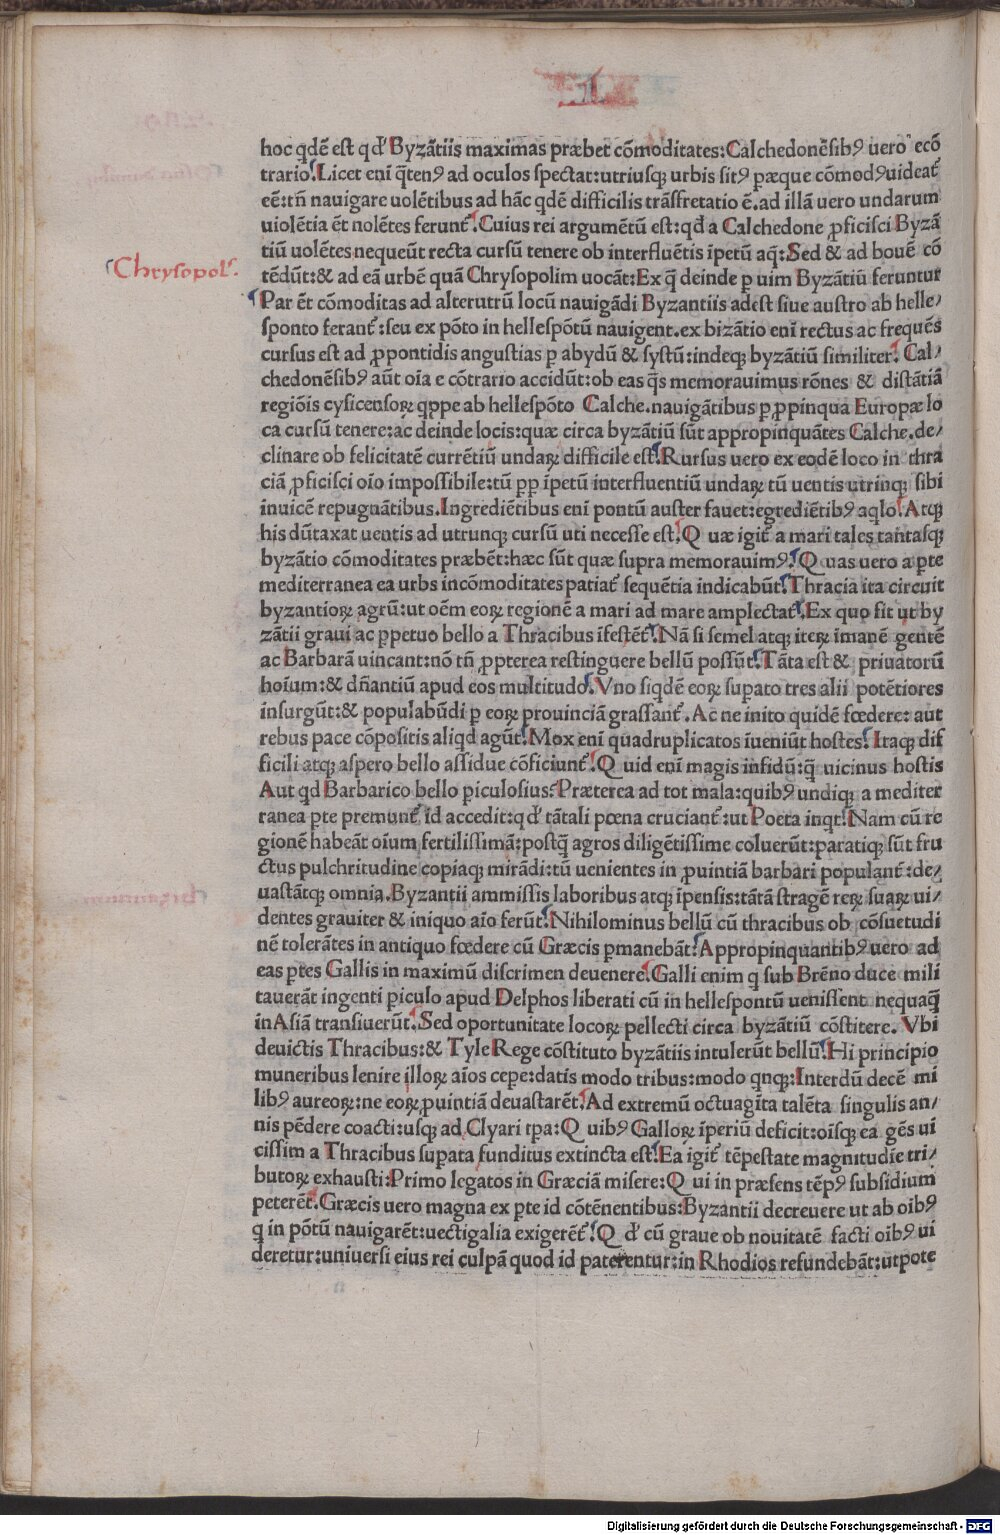 1
hoc qdē est qđ Byzātiis maximas præbet cōmoditates: Calchedonēsibꝰ uero ecō
trario. Licet eni q̄tenꝰ ad oculos spectat: utriusqꝫ urbis sitꝰ pæque cōmodꝰ uideat᷑
eē: tn̄ nauigare uolētibus ad hāc qdē difficilis trāsfretatio ē. ad illā uero undarum
uiolētia ēt nolētes ferunt᷑. Cuius rei argumētū est: qđ a Calchedone ꝓficisci Byzā
tiū uolētes nequeūt recta cursū tenere ob interfluētis īpetū aq̄: Sed & ad bouē cō
Chrysopol᷑.
tēdūt: & ad eā urbē quā Chrysopolim uocāt: Ex q̄ deinde ꝑ uim Byzātiū feruntur
Par ēt cōmoditas ad alterutrū locū nauigādi Byzantiis adest siue austro ab helle/
sponto ferant᷑: seu ex pōto in hellespōtū nauigent. ex bizātio eni rectus ac frequēs
cursus est ad ꝓpontidis angustias ꝑ abydū & systū: indeqꝫ byzātiū similiter. Cal/
chedonēsibꝰ aūt oīa e cōtrario accidūt: ob eas q̄s memorauimus rōnes & distātiā
regiōis cysicensoꝝ qppe ab hellespōto Calche. nauigātibus ꝑ ꝓpinqua Europæ lo
ca cursū tenere: ac deinde locis: quæ circa byzātiū sūt appropinquātes Calche. de/
clinare ob felicitatē currētiū undaꝝ difficile est. Rursus uero ex eodē loco in thra
ciā ꝓficisci oīo impossibile: tū ꝓp īpetū interfluentiū undaꝝ tū uentis utrinqꝫ sibi
inuicē repugnātibus. Ingrediētibus eni pontū auster fauet: egrediētibꝰ aqlo. Atqꝫ
his dūtaxat uentis ad utrunqꝫ cursū uti necesse est. Quæ igit᷑ a mari tales tantasqꝫ
byzātio cōmoditates præbēt: hæc sūt quæ supra memorauimꝰ. Quas uero a ꝑte
mediterranea ea urbs incōmoditates patiat᷑ sequētia indicabūt. Thracia ita circuit
byzantioꝝ agrū: ut oēm eoꝝ regionē a mari ad mare amplectat᷑. Ex quo fit ut by
zātii graui ac ꝑpetuo bello a Thracibus īfestēt᷑. Nā si semel atqꝫ iteꝝ īmanē gentē
ac Barbarā uincant: nō tn̄ ꝓpterea restinguere bellū possūt. Tāta est & priuatorū
hoīum: & dn̄antiū apud eos multitudo. Vno siqdē eoꝝ supato tres alii potētiores
insurgūt: & populabūdi ꝑ eoꝝ prouinciā grassant᷑. Ac ne inito quidē fœdere: aut
rebus pace cōpositis aliqd agūt. Mox eni quadruplicatos īueniūt hostes. Itaqꝫ dif
ficili atqꝫ aspero bello assidue cōficiunt᷑. Quid eni magis infidū: q̄ uicinus hostis
Aut qd Barbarico bello ꝑiculosius. Præterea ad tot mala: quibꝰ undiqꝫ a mediter
ranea ꝑte premunt᷑ id accedit: qđ tātali pœna cruciant᷑: ut Poeta inqt. Nam cū re
gionē habeāt oīum fertilissimā: postq̄ agros diligētissime coluerūt: paratiqꝫ sūt fru
ctus pulchritudine copiaqꝫ mirādi: tū uenientes in ꝓuintiā barbari populant᷑: de/
uastātqꝫ omnia. Byzantii ammissis laboribus atqꝫ īpensis: tātā stragē reꝝ suaꝝ ui/
dentes grauiter & iniquo aīo ferūt. Nihilominus bellū cū thracibus ob cōsuetudi
nē tolerātes in antiquo fœdere cū Græcis ꝑmanebāt. Appropinquantibꝰ uero ad
eas ꝑtes Gallis in maximū discrimen deuenere. Galli enim q sub Brēno duce mili
tauerāt ingenti ꝑiculo apud Delphos liberati cū in hellespontū uenissent nequaq̄
in Asiā transiuerūt. Sed oportunitate locoꝝ pellecti circa byzātiū cōstitere. Vbi
deuictis Thracibus: & Tyle Rege cōstituto byzātiis intulerūt bellū. Hi principio
muneribus lenire illoꝝ aīos cepe: datis modo tribus: modo qnqꝫ: Interdū decē mi
libꝰ aureoꝝ: ne eoꝝ ꝓuintiā deuastarēt. Ad extremū octuagīta talēta singulis an/
nis pēdere coacti: usqꝫ ad Clyari tpa: Quibꝰ Galloꝝ īperiū deficit: oīsqꝫ ea gēs ui
cissim a Thracibus supata funditus extincta est. Ea igit᷑ tēpestate magnitudīe tri/
butoꝝ exhausti: Primo legatos in Græciā misere: Qui in præsens tēpꝰ subsidium
peterēt. Græcis uero magna ex ꝑte id cōtēnentibus: Byzantii decreuere ut ab oibꝰ
q in pōtū nauigarēt: uectigalia exigerēt᷑. Qđ cū graue ob nouitatē facti oibꝰ ui
deretur: uniuersi eius rei culpā quod id paterentur: in Rhodios refundebāt: utpote
Digitalisierung gefördert durch die Deutsche Forschungsgemeinschaft - DFG